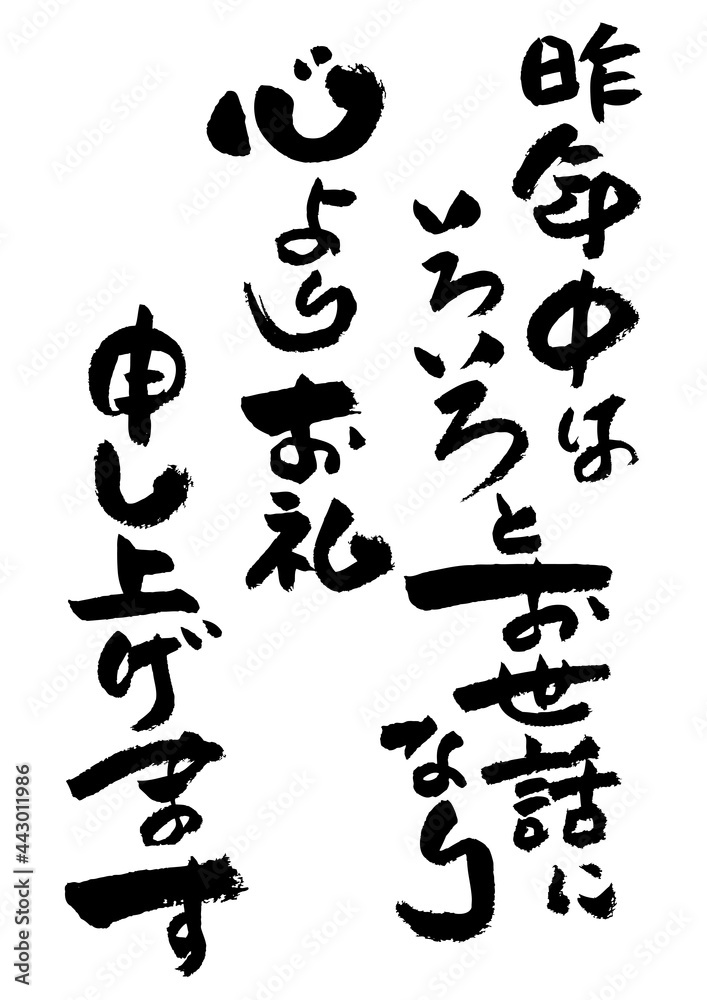 昨年中は
いろいろとお世話に
なり
心よりお礼
申し上げます
Adobe Stock | #443011986